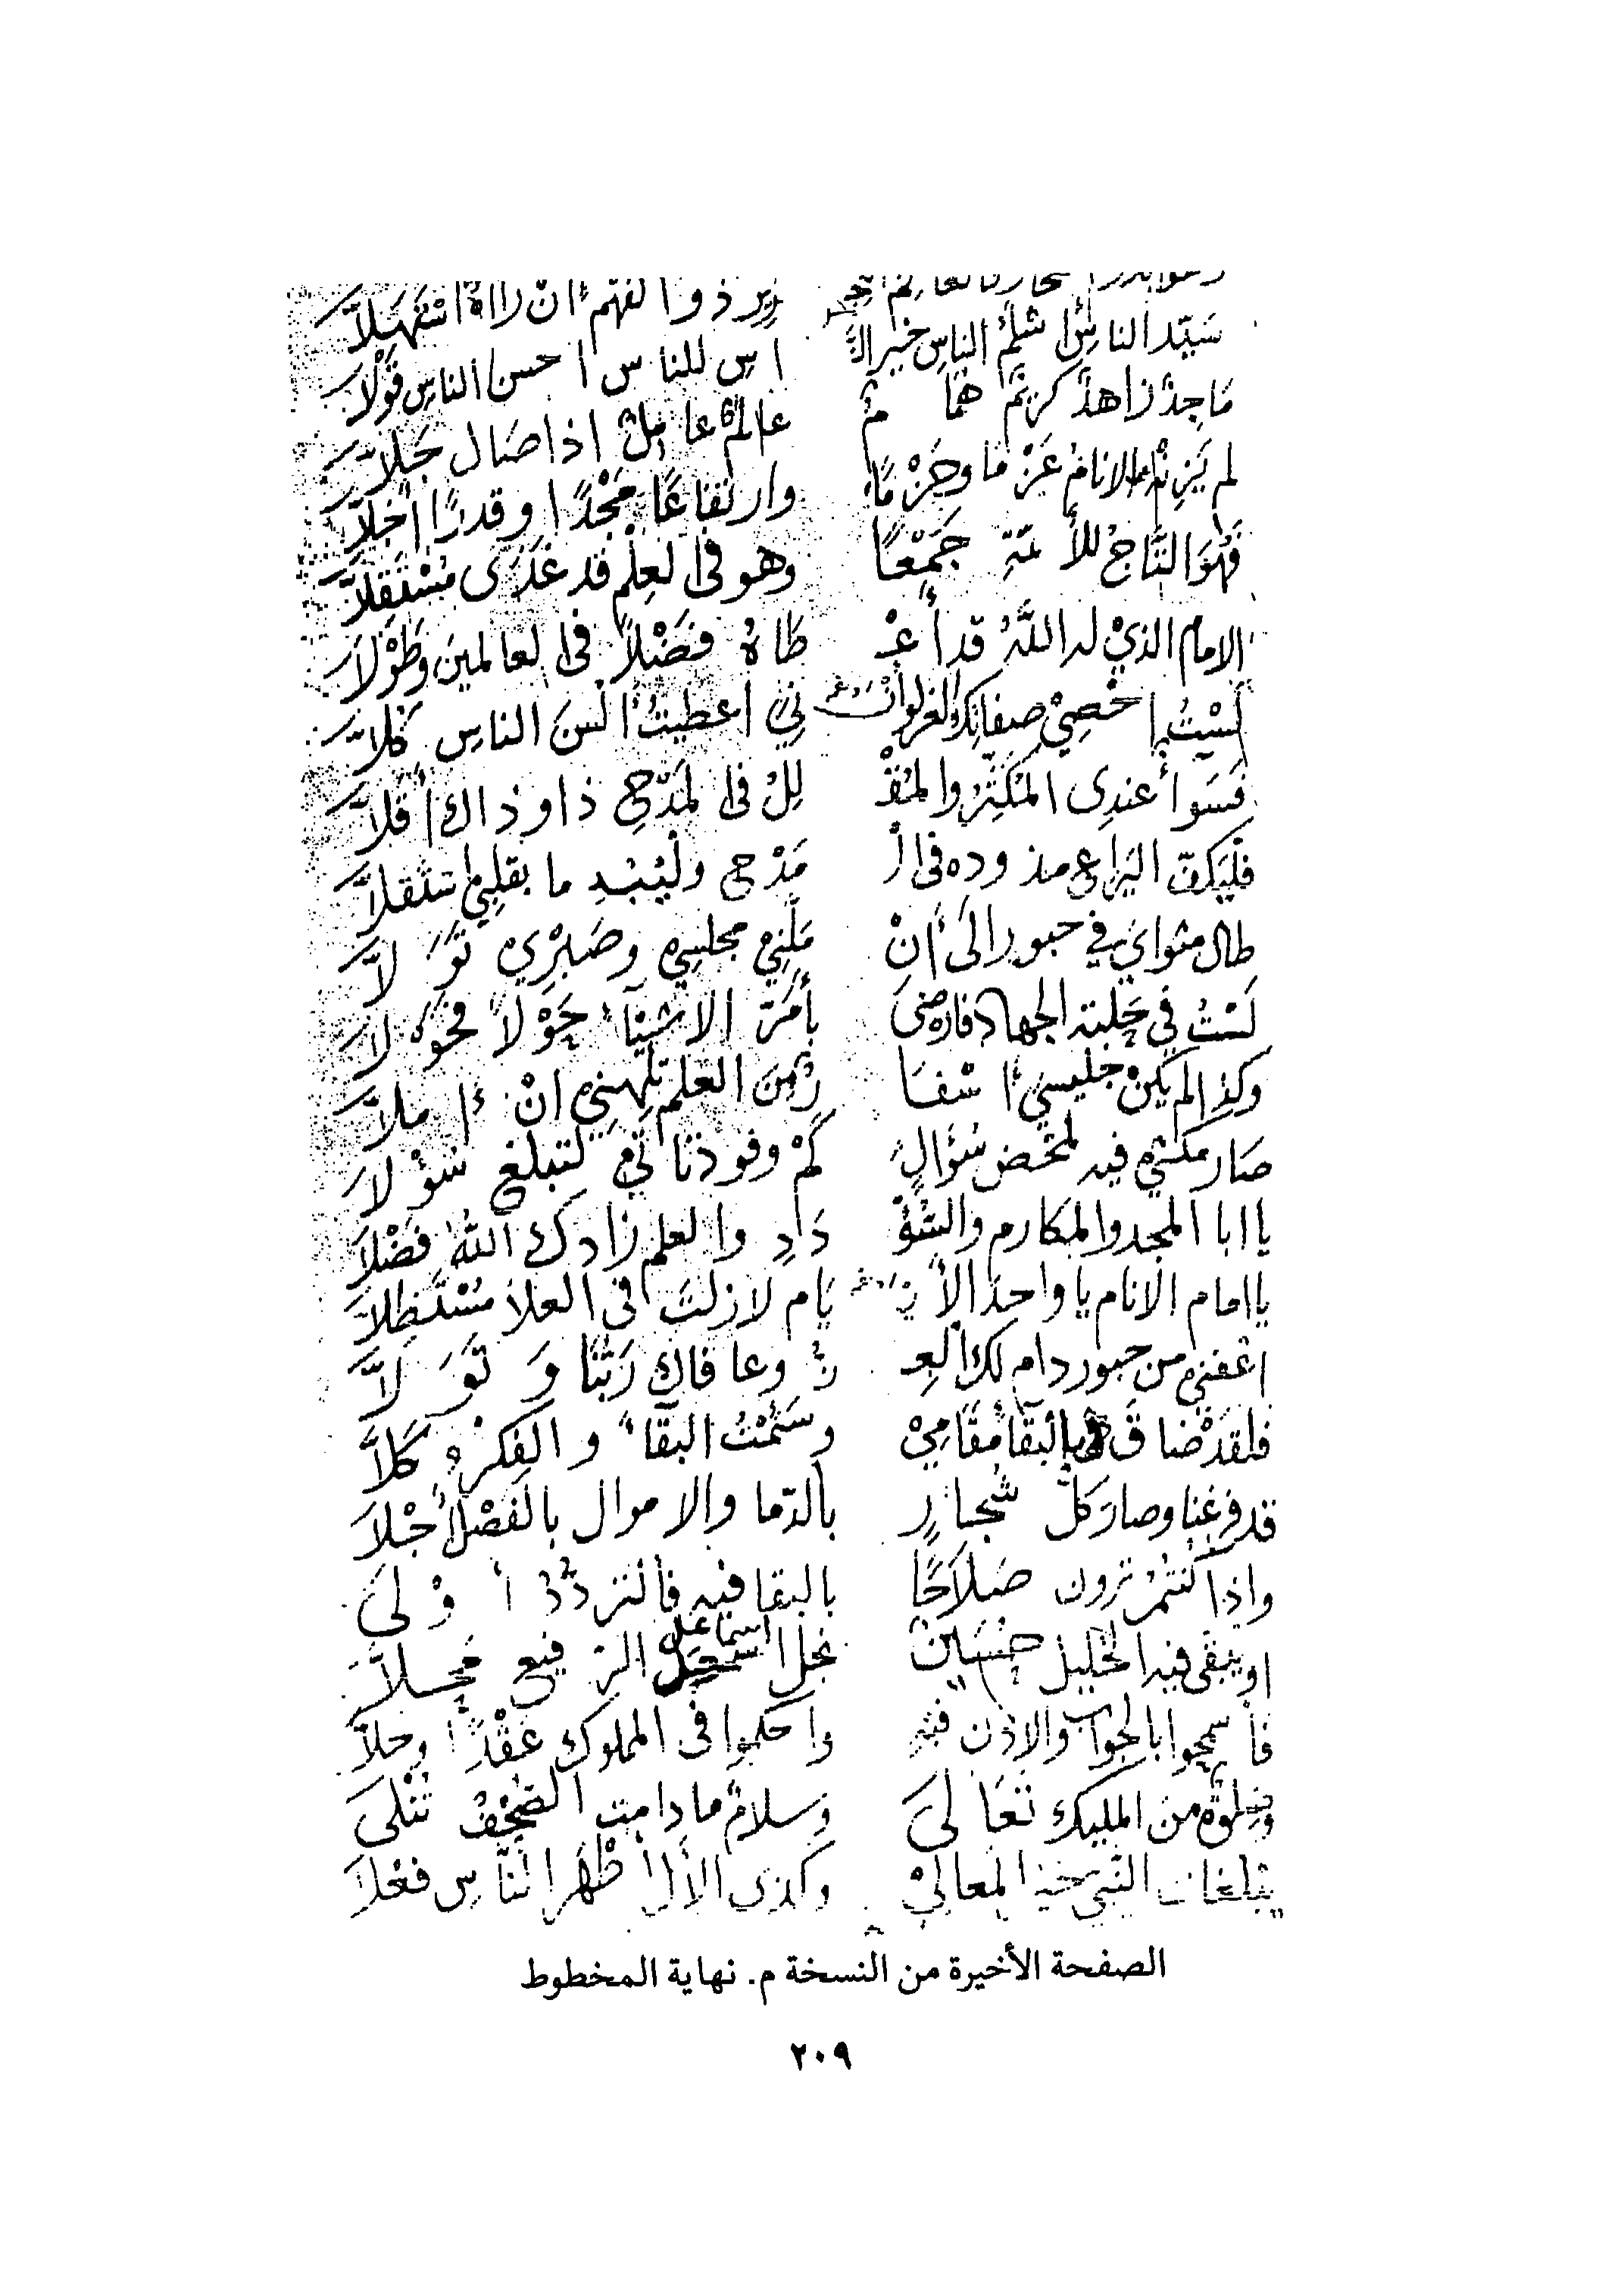 زير ذوا لفهم ان رااه استهلا
سيد الناس اشلم الناس خير ال اس للناس احسن الناس قولا
ماجد زاهد كريم هما م عالم عامل اذا صال جلا
لم الانام عزما وحزما وارتفاعا مجدا وقدرا اجلا
فهو التاج للأئمة جمعا وهو في العلم قد غدى مستقلا
الامام الذي له الله قد أعـ طاه فضلا في العالمين وطولا
لست احصي صفاتك الغر لو أنـ ني اعطيت ألسن الناس كلا
فسوا عندي المكثر والمقـ لل في المدح ذا وذاك أقلا
فليكف اليراع من وده في الـ مدح وليبد ما بقلبي استقلا
طال مثواي في حبور إلى أن ملني مجلسي وصبري تولا
لست في حلبة الجهاد فارضى بأمرة الاشياء حولا فحولا
وكذا لم يكن جليسي اسفا ر من العلم تلهني ان املا
صار مكثي فيه لمحض سؤال كم وفود تأتي لتبلغ سؤلا
يا ابا المجد والمكارم والسؤ داد والعلم زادك الله فضلا
يا امام الانام يا واحد الأ يام لا زلت في العلا مستظلا
اعفني من حبور دام لك العـ ز وعافاك ربنا و تو لا
فلقد ضاق بالبقا مقامي وسئمت البقاء والفكر كلا
قد فرغنا وصار كل شجار بالدما والاموال بالفصل أجلا
واذا كنتم ترون صلاحا بالبقا فيه فالتردد أولى
او يبقى فيه الخليل حسين نجل اسماعيل الرفيع محلا
فأسمحوا بالجواب والاذن فيه واحكموا في المملوك عقدا وحلا
وصلوة من المليك تعالى وسلام ما دامت الصحف تتلى
يبلغان النبي المعالي وكذى الأل اطهر الناس فعلا
الصفحة الأخيرة من النسخة م. نهاية المخطوط
٢٠٩